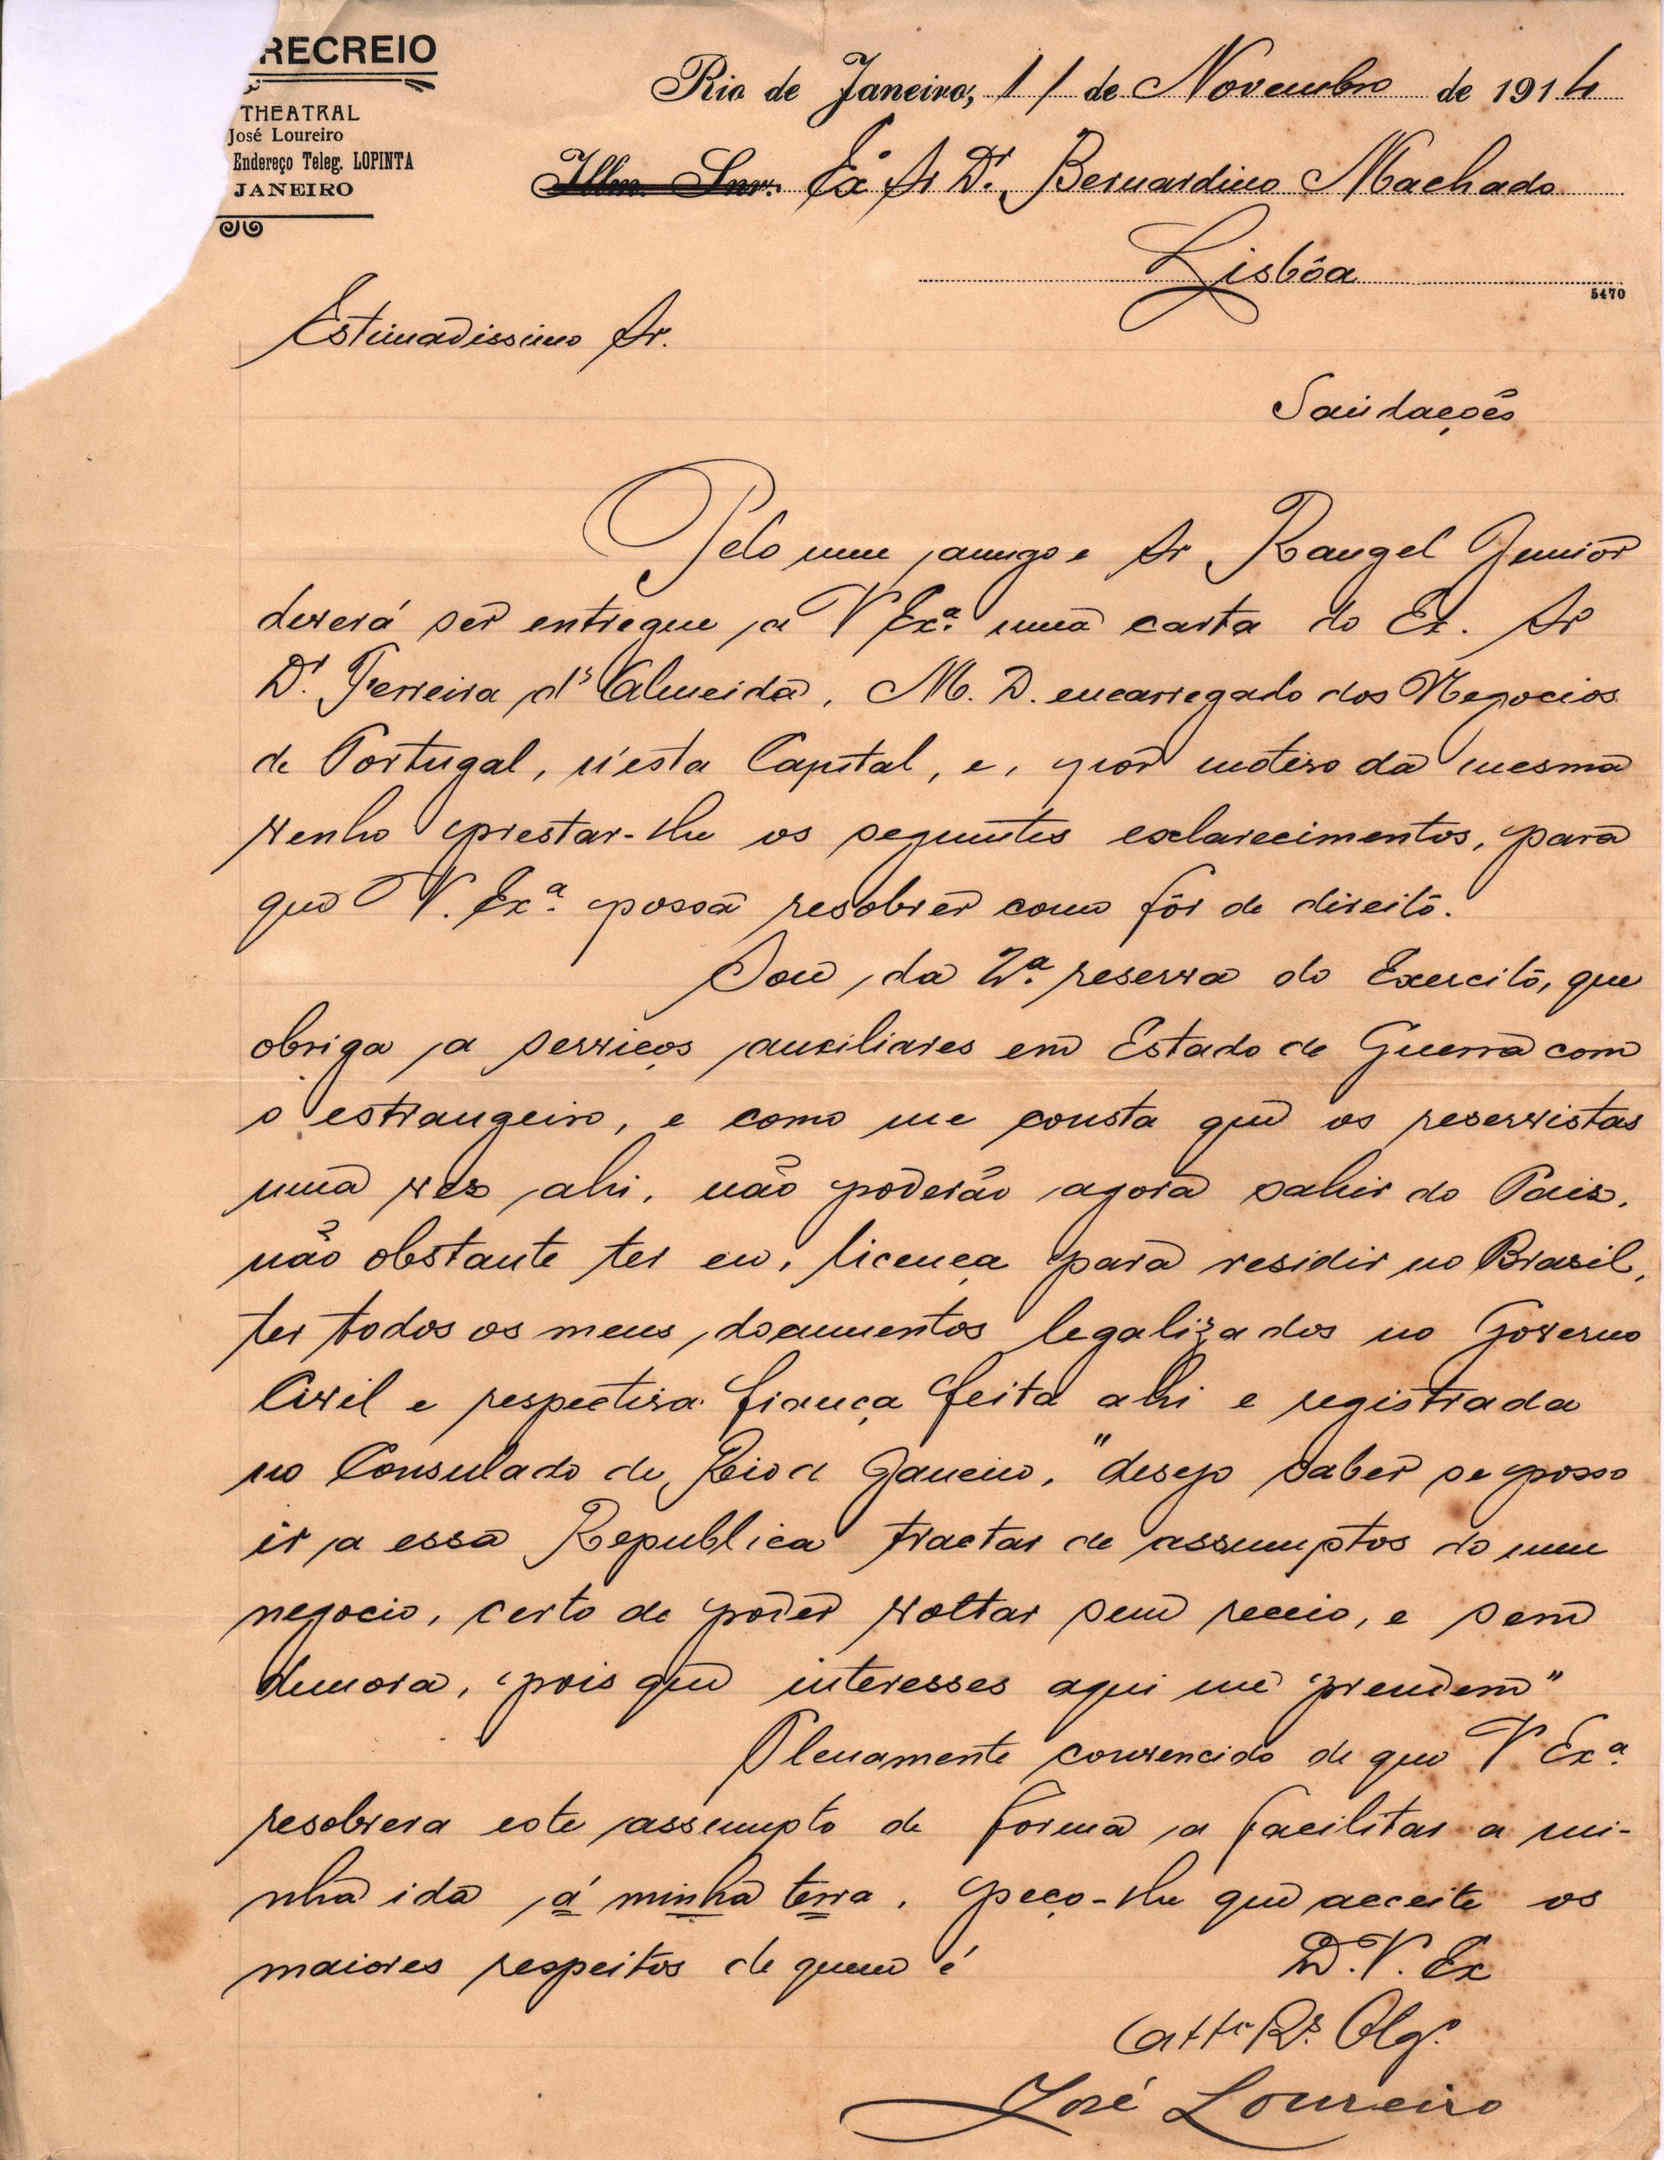 RECREIO
THEATRAL
José Loureiro
Endereço Teleg. LOPINTA
JANEIRO
Rio de Janeiro, 11 de Novembro de 1914
Illm. Snr. Exº Sr Dr. Bernardino Machado
Lisbôa
5470
Estimadissimo Sr.
Saúdações
Pelo meu amigo e Sr Rangel Junior
deverá ser entregue a V Exª. uma carta do Ex. Sr
Dr. Ferreira d'Almeida, M. D. encarregado dos Negocios
de Portugal, n'esta Capital, e, por motivo da mesma
venho prestar-lhe os seguintes esclarecimentos, para
que V. Exª. possa resolver como fôr de direito.
Sou da 2ª. reserva do Exercito, que
obriga a serviços auxiliares em Estado de Guerra com
o estrangeiro, e como me consta que os reservistas
uma vez ahi, não poderão agora sahir do Paiz,
não obstante ter eu, licença para residir no Brasil,
ter todos os meus documentos legalizados no Governo
Civil e respectiva fiança feita ahi e registrada
no Consulado do Rio d Janeiro, "desejo saber se posso
ir a essa Republica tractar de assumptos do meu
negocio, certo de poder voltar sem receio, e sem
demora, pois que interesses aqui me prendem"
Plenamente convencido de que V Exª.
resolvera este assumpto de forma a facilitar a mi-
nha ida á minha terra, peço-lhe que acceite os
maiores respeitos de quem é
D. V. Ex
Attº Rs. Obgº.
José Loureiro